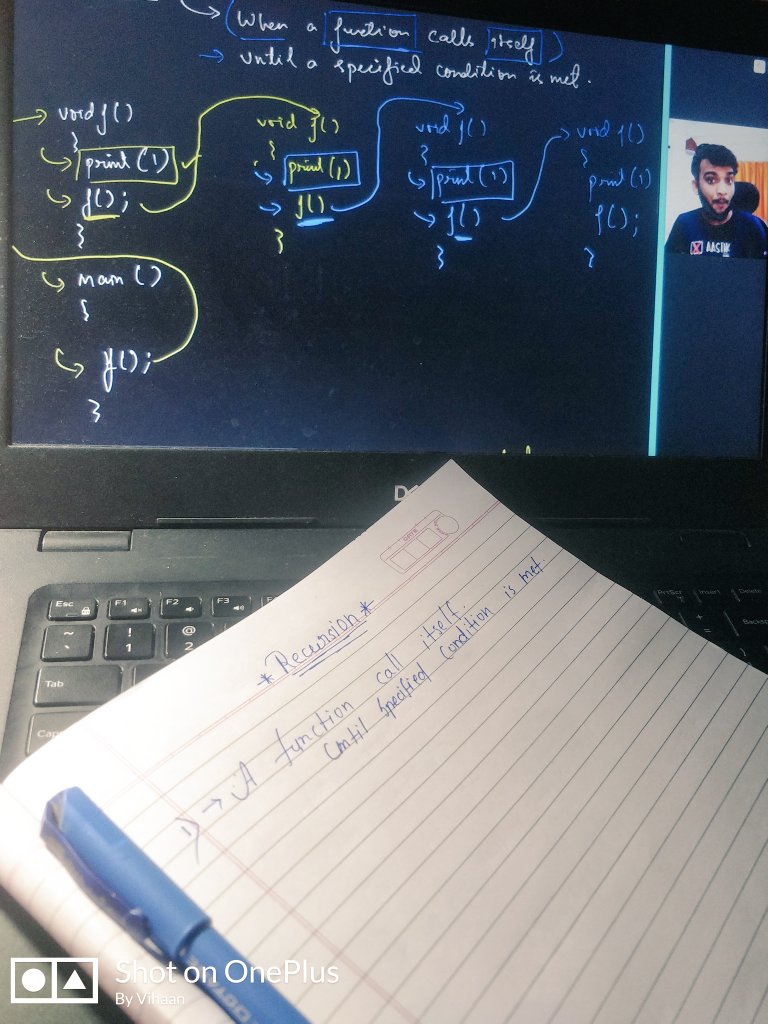 (When a function calls itself)
until a specified condition is met.
void f()
{
print(1)
f();
}
main()
{
f();
}
void f()
{
print(1)
f()
}
void f()
{
print(1)
f()
}
void f()
{
print(1)
f();
}
AASTIK
Esc
F1
F2
F3
~
`
!
1
@
2
Tab
PrtScr
Insert
Delete
+
=
Backsp
DATE
* Recursion *
1) → A function call itself.
Until specified condition is met.
Shot on OnePlus
By Vihaan